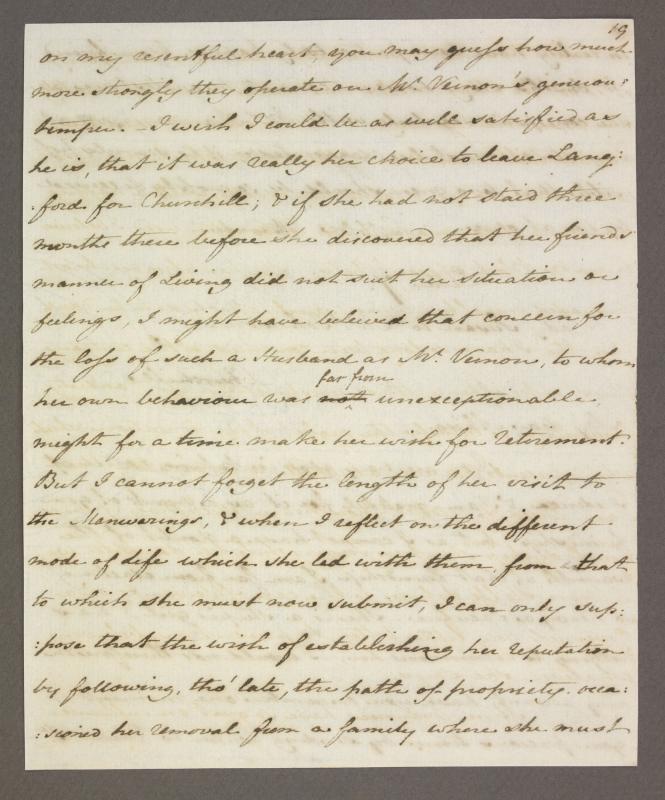 19
on my resentful heart, you may guess how much
more strongly they operate on Mr. Vernon's generous
temper. - I wish I could be as well satisfied as
he is, that it was really her choice to leave Lang:
:ford for Churchill; & if she had not staid three
months there before she discovered that her friends
manner of Living did not suit her situation or
feelings, I might have beleived that concern for
the loss of such a Husband as Mr. Vernon, to whom
far from
her own behaviour was not unexceptionable,
might for a time make her wish for retirement.
But I cannot forget the length of her visit to
the Manwarings, & when I reflect on the different
mode of Life which she led with them, from that
to which she must now submit, I can only sup:
:pose that the wish of establishing her reputation
by following, tho' late, the path of propriety, occa:
:sioned her removal from a family where she must